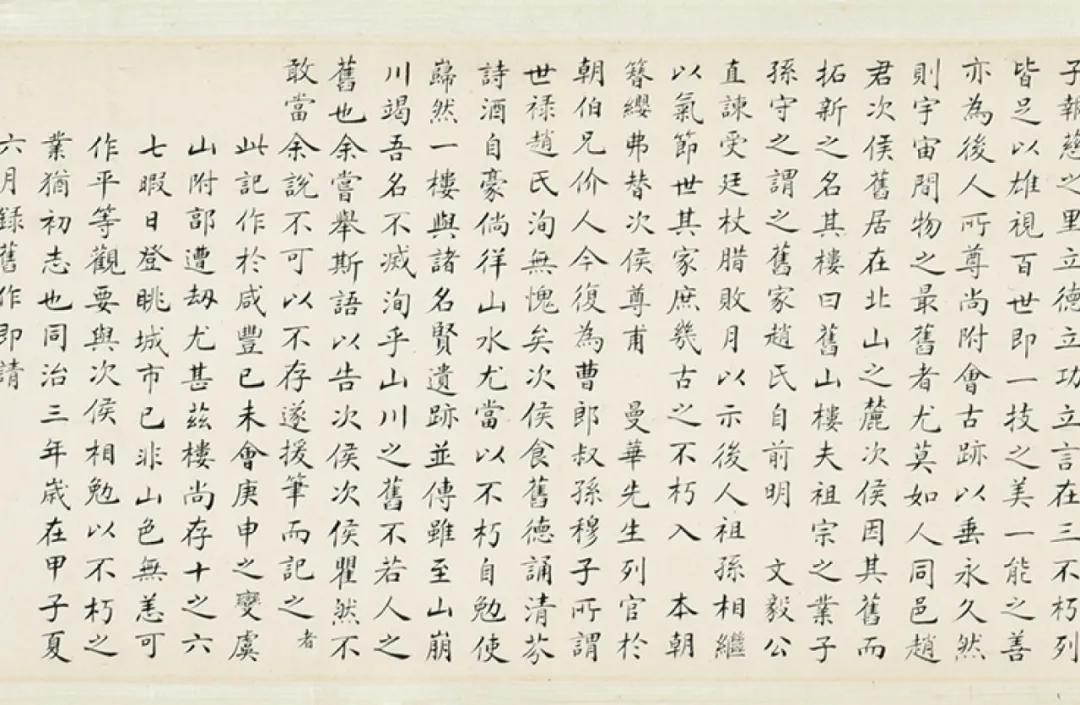 子報慈之里立德立功立言在三不朽列
皆足以雄視百世即一技之美一能之善
亦為後人所尊尚附會古跡以垂永久然
則宇宙間物之最舊者尤莫如人同邑趙
君次侯舊居在北山之麓次侯因其舊而
拓新之名其樓曰舊山樓夫祖宗之業子
孫守之謂之舊家趙氏自前明 文毅公
直諫受廷杖腊敗月以示後人祖孫相繼
以氣節世其家庶幾古之不朽入 本朝
簪纓弗替次侯尊甫 曼華先生列官於
朝伯兄价人今復為曹郎叔孫穆子所謂
世禄趙氏洵無愧矣次侯食舊德誦清芬
詩酒自豪倘徉山水尤當以不朽自勉使
巋然一樓與諸名賢遺跡並傳雖至山崩
川竭吾名不滅洵乎山川之舊不若人之
舊也余嘗舉斯語以告次侯次侯瞿然不
敢當余說不可以不存遂援筆而記之者
此記作於咸豐己未會庚申之變虞
山附郭遭刼尤甚茲樓尚存十之六
七暇日登眺城市已非山色無恙可
作平等觀要與次侯相勉以不朽之
業猶初志也同治三年歲在甲子夏
六月録舊作即請